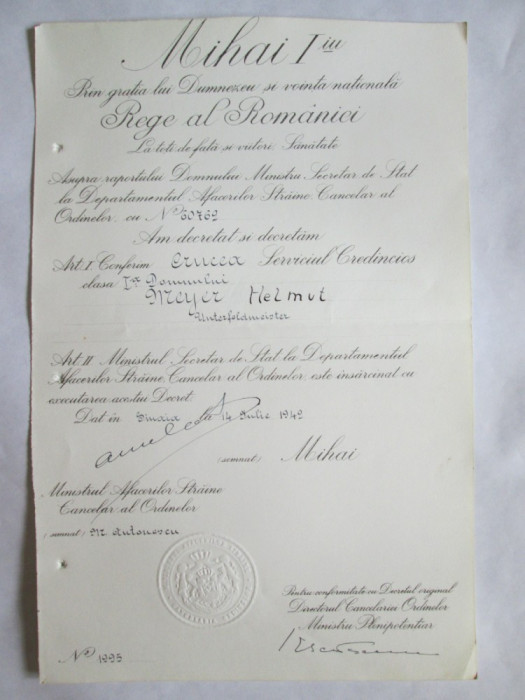 Mihai I iu
Prin gratia lui Dumnezeu si vointa nationala
Rege al României
La toti de fată si viitori, Sănătate
Asupra raportului Domnului Ministru Secretar de Stat
la Departamentul Afacerilor Străine, Cancelar al
Ordinelor, cu Nº 60762
Am decretat si decretăm
Art. I Conferim Crucea Serviciul Credincios
clasa Iª Domnului
Meyer Helmut
Unterfeldmeister
Art. II Ministrul Secretar de Stat la Departamentul
Afacerilor Străine, Cancelar al Ordinelor, este însărcinat cu
executarea acestui Decret.
Dat în Sinaia la 14 Iulie 1942
(semnat) Mihai
Ministrul Afacerilor Străine
Cancelar al Ordinelor
(semnat) M Antonescu
Pentru conformitate cu Decretul original
Directorul Cancelariei Ordinelor
Ministru Plenipotentiar
Nº 1995